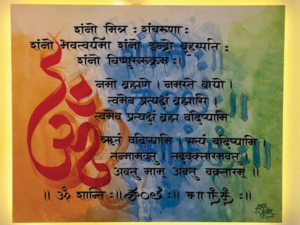 शंनो मित्र : शंवरुणा :
शंनो भवत्वर्यमा शंनो इन्द्रो बृहस्पति :
शंनो विष्णुरुरुक्रम :।
नमो ब्रह्मणे । नमस्ते वायो ।
त्वमेव प्रत्यक्षं ब्रह्मासि
त्वमेव प्रत्यक्षं ब्रह्म वदिष्यामि
ॐ
ऋतं वदिष्यामि सत्यं वदिष्यामि
तन्मामवतु तद्वक्तारमवतु
अवतु माम् अवतु वक्तारम्
॥ ॐ शान्ति :॥